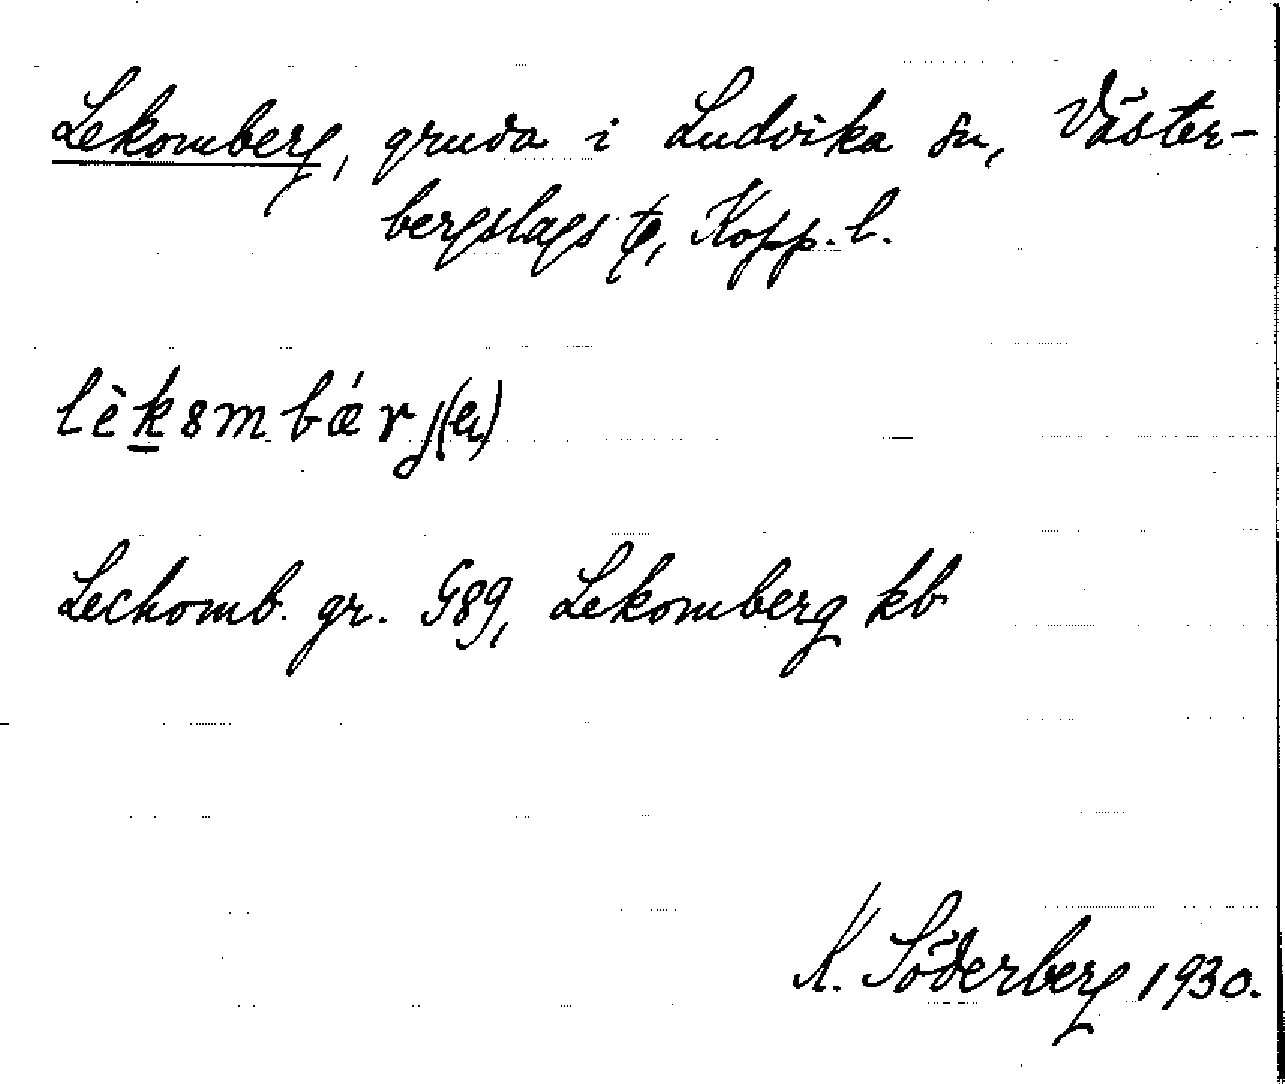 Lekomberg, gruva i Ludvika sn, Väster-
bergslags tg, Kopp. l.
lèksmbǽrj(a)
Lechomb. gr. G89, Lekomberg kb
K. Söderberg 1930.